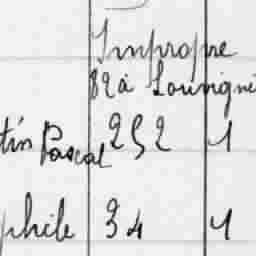 Impropre
82 à Louvigné
tin Pascal 252 1
phile 34 1